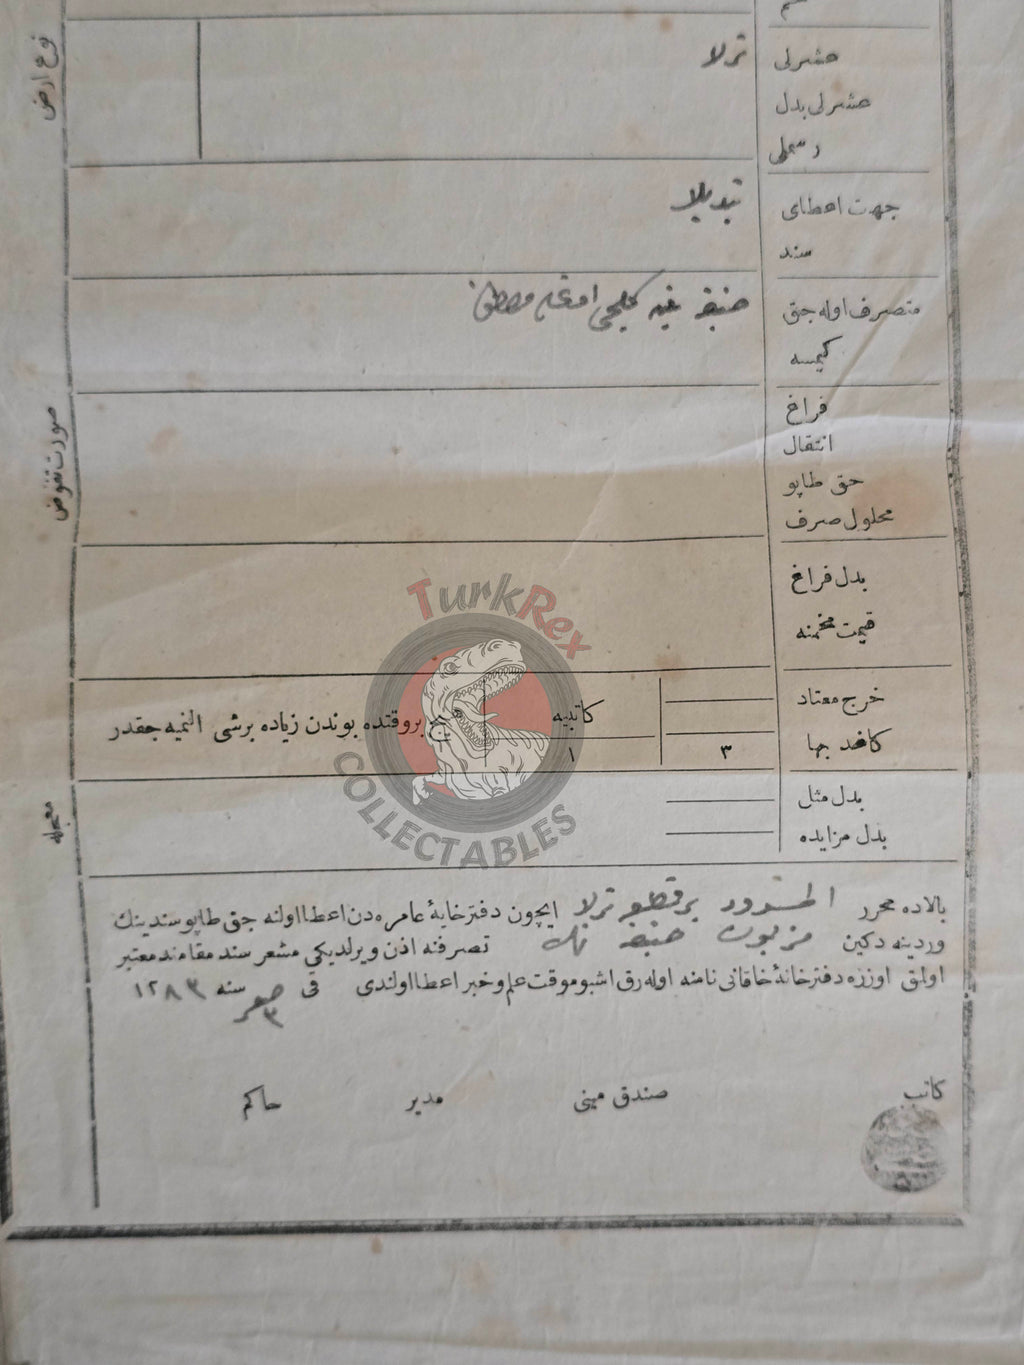 نوع ارض
عشرلی
ترلا
عشرلی بدل
رسملی
جهت اعطای
تبدیلا
سند
متصرف اوله جق
مصطفی
کیمسه
صورت تفوض
فراغ
انتقال
حق طاپو
محلول صرف
بدل فراغ
قیمت مخمنه
خرج معتاد
کاغد بها
٣
کاتبیه
١
هیچ بروقتده بوندن زیاده برشی النمیه جقدر
TurkRex
COLLECTABLES
معجله
بدل مثل
بدل مزایده
بالاده محرر الحدود بر قطعه ترلا ایچون دفترخانهٔ عامره دن اعطا اولنه جق طاپو سندینك
وردینه دکین تصرفنه اذن ویرلدیکی مشعر سند مقامنده معتبر
اولمق اوزره دفترخانهٔ خاقانی نامنه اوله رق اشبو موقت علم و خبر اعطا اولندی فی ٣ صفر سنه ١٢٨٣
کاتب
صندق امینی
مدیر
حاکم